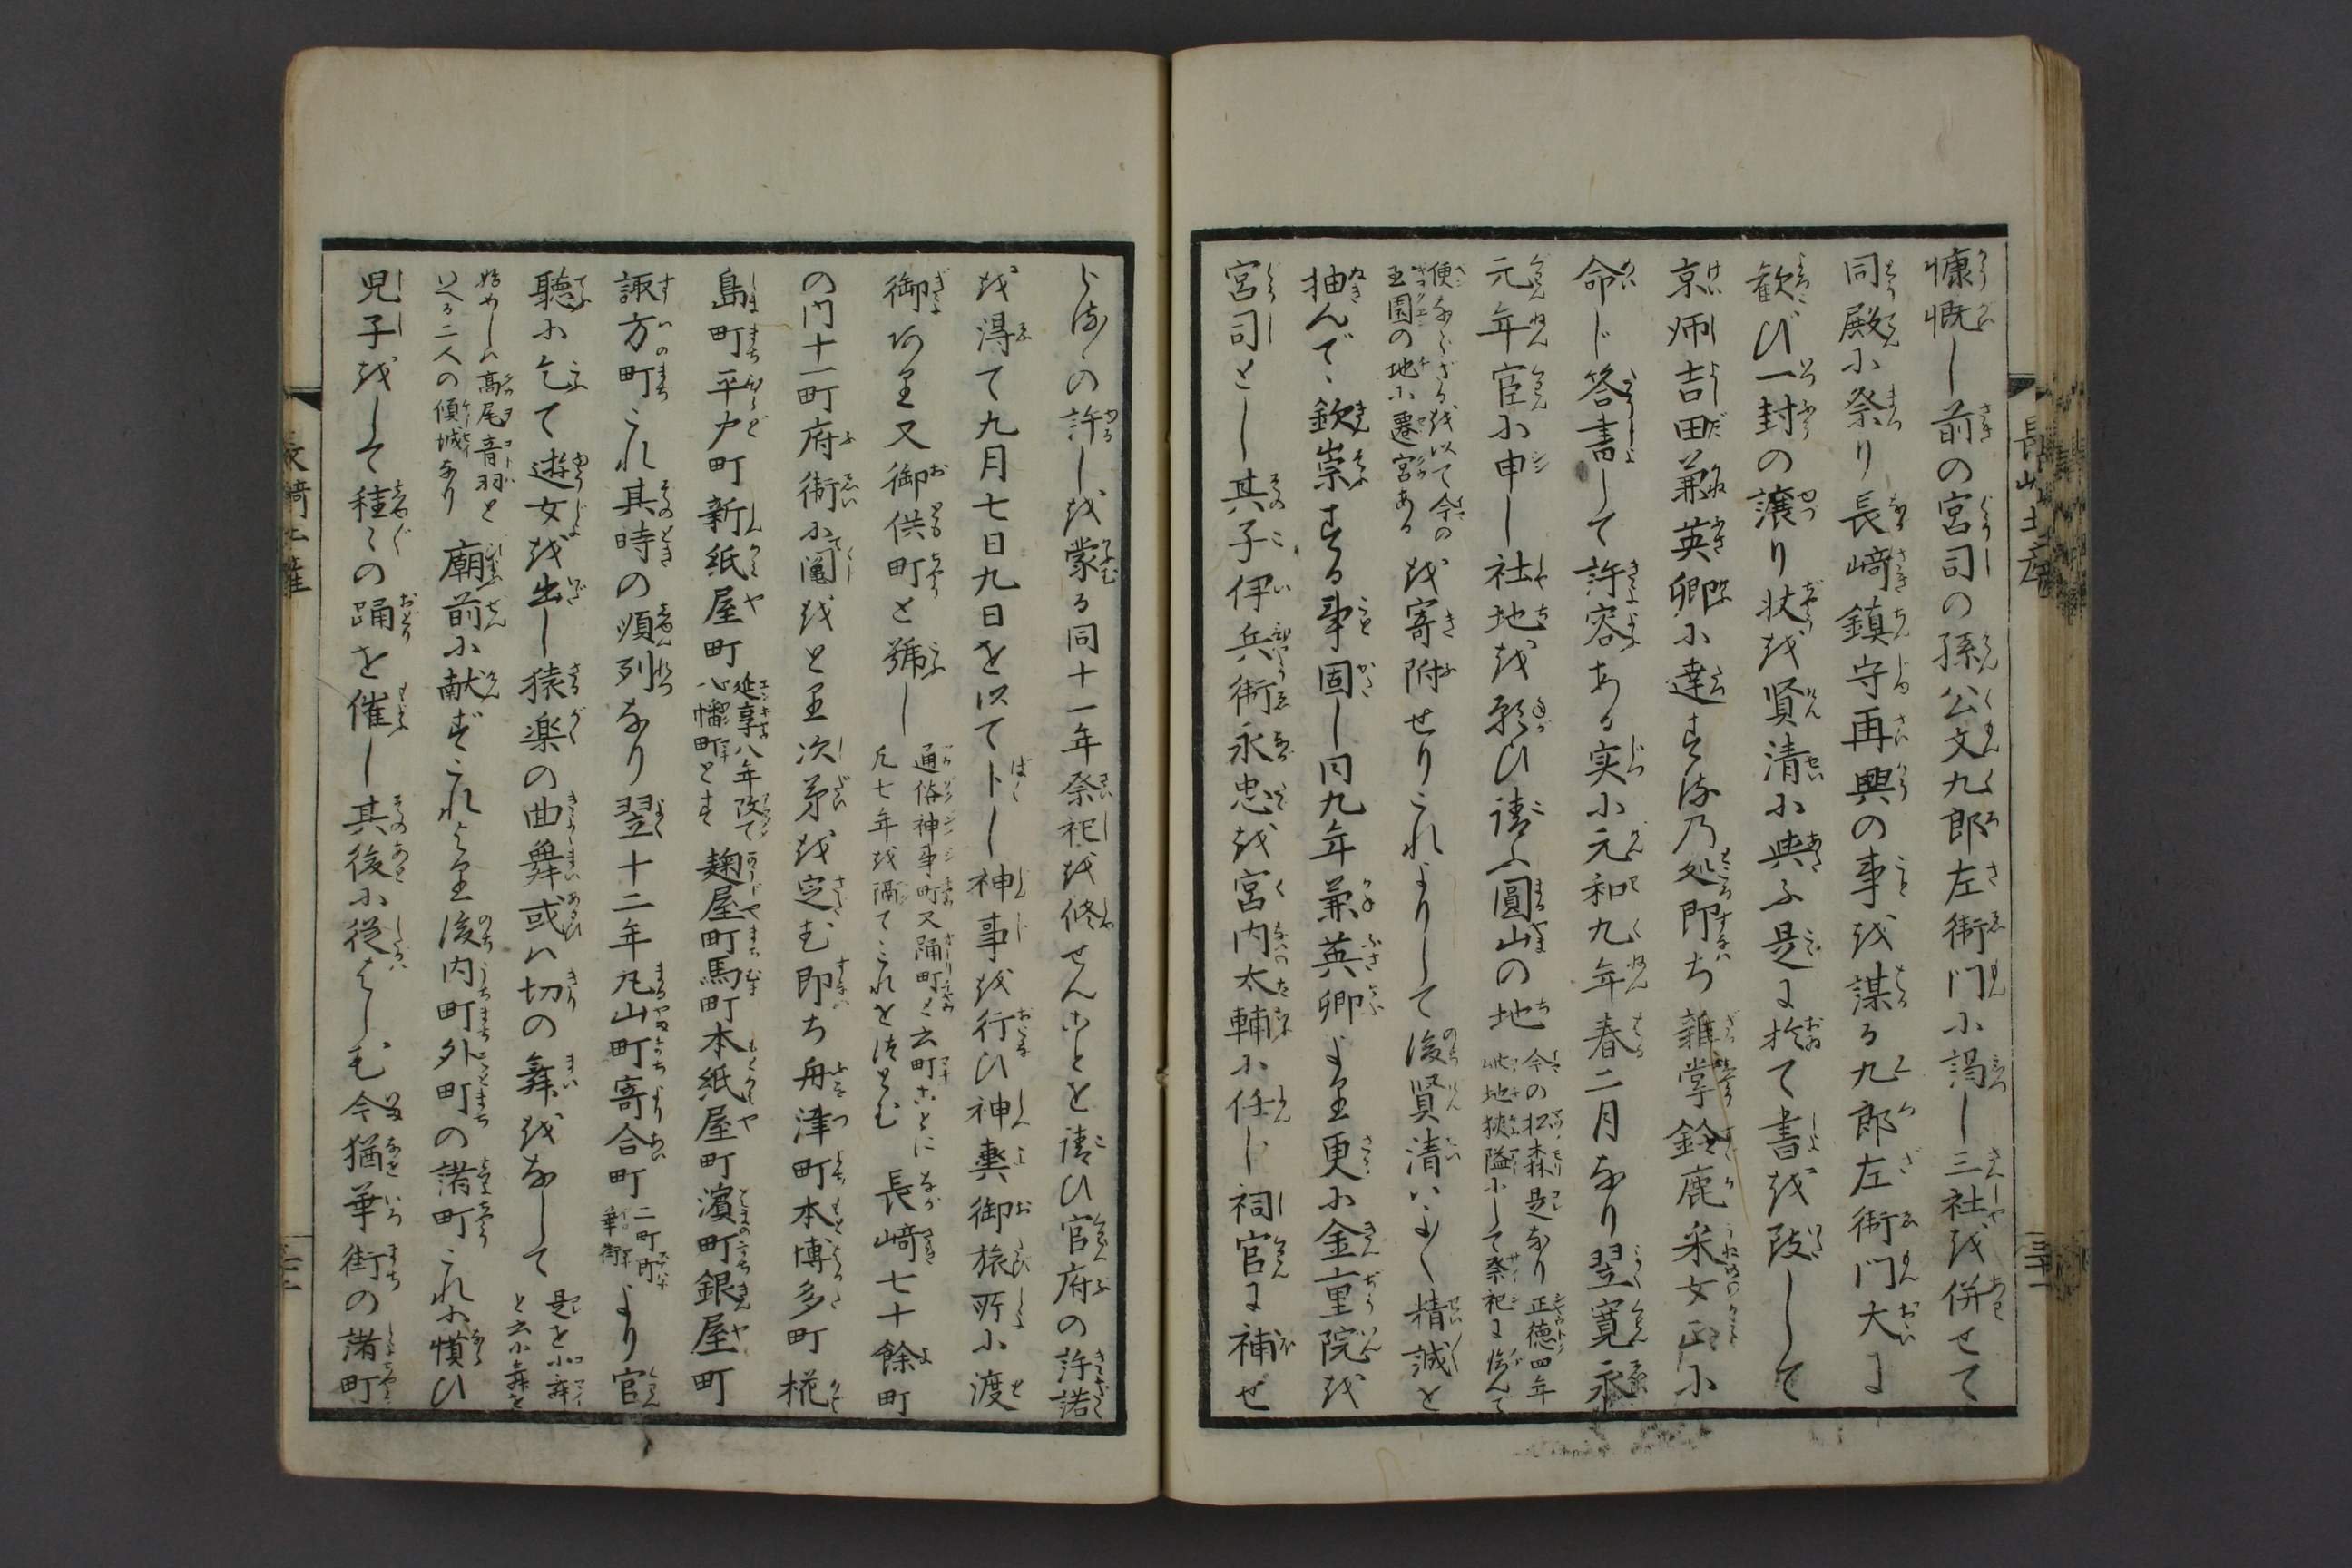 慷慨し前の宮司の孫公文九郎左衛門小謁し三社越併せて
同殿小祭り長﨑鎮守再興の事越謀る九郎左衛門大に
歓び一封の譲り状越賢清小與ふ是に於て書越致しして
京師吉田兼英卿小達す乃処即ち雑掌鈴鹿采女正小
命じ答書して許容ある実小元和九年春二月なり翌寛永
元年官小申し社地越願ひ請ふ圓山の地
今の松森是なり正徳四年
此地狭隘小して祭祀に
便ならざる越以て今の
玉園の地小遷宮ある
越寄附せりこれよりして後賢清いよ〱精誠を
抽んで欽崇する事固し同九年兼英卿より更小金重院越
宮司とし其子伊兵衛永忠越宮内太輔小任じ祠官に補せ
長﨑土産
らるゝの許し越蒙る同十一年祭祀越修せんことを請ひ官府の許諾
越得て九月七日九日を以て卜し神事越行ひ神輿御旅所小渡
御あり又御供町と號し
通俗神事町又踊町と云町ことに
凡七年越隔てこれをつとむ
長﨑七十餘町
の内十一町府衙小鬮越とり次第越定む即ち舟津町本博多町椛
島町平戸町新紙屋町
延享八年改て
八幡町とす
麹屋町馬町本紙屋町濱町銀屋町
諏方町これ其時の順列なり翌十二年丸山町寄合町
二町即
華街
より官
聴小乞て遊女越出し猿楽の曲舞或ハ切の舞越なして
是を小舞
と云小舞を
始めしハ高尾音羽と
いへる二人の傾城なり
廟前小献ずこれより後内町外町の諸町これ小慣ひ
児子越して種〻の踊を催し其後小従はしむ今猶華街の諸町
長﨑土産